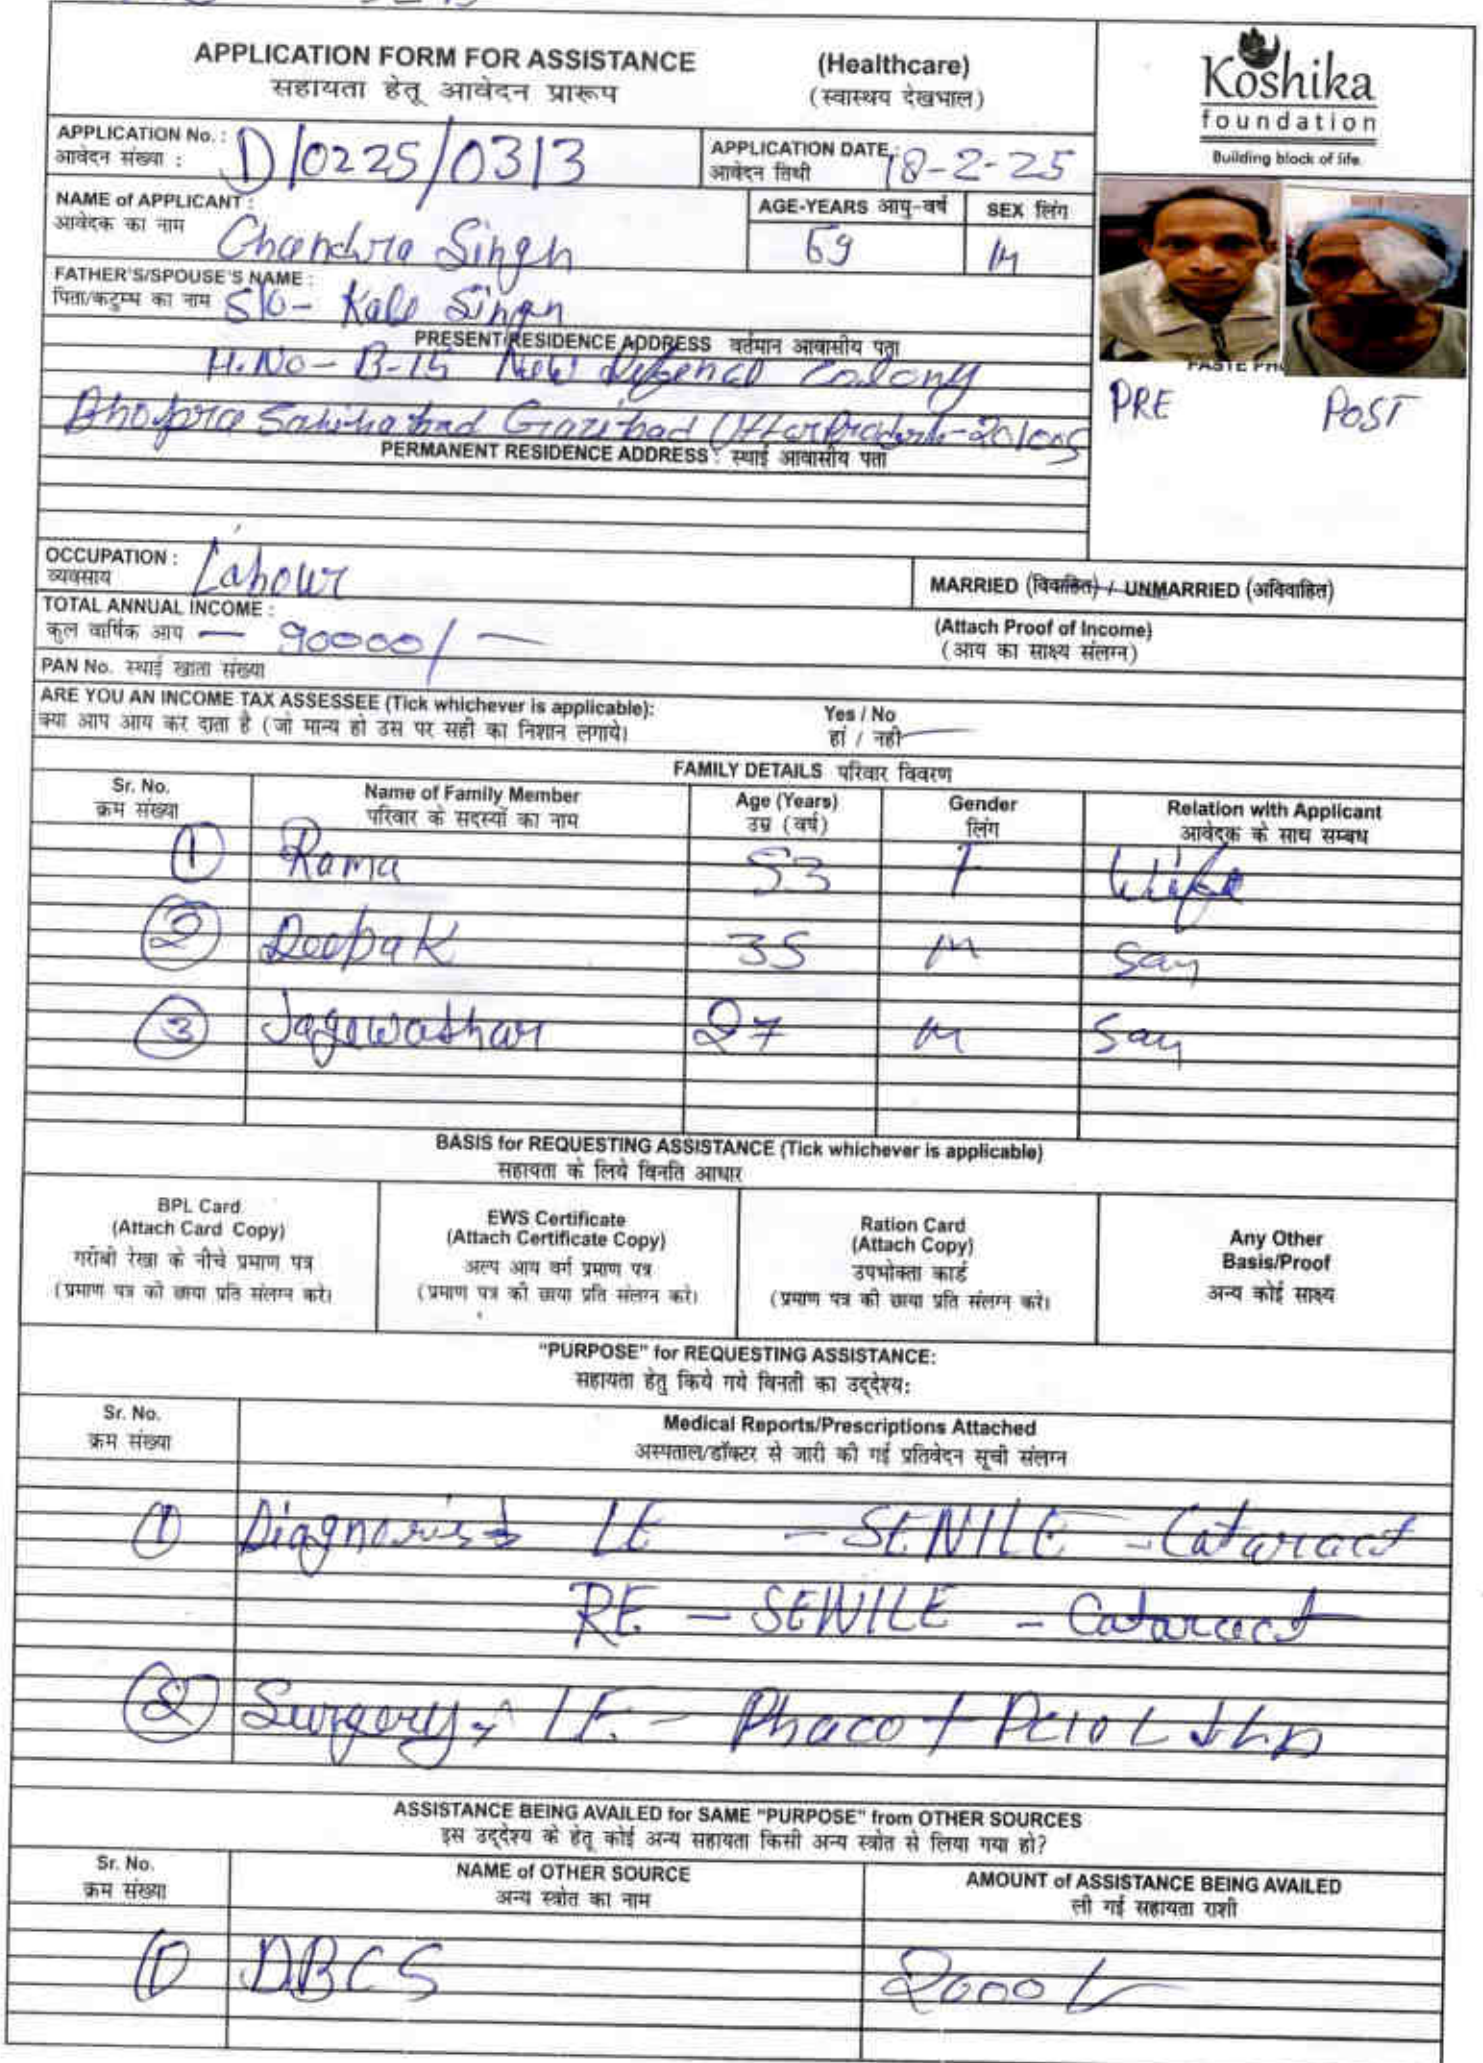 APPLICATION FORM FOR ASSISTANCE (Healthcare)
सहायता हेतू आवेदन प्रारूप (स्वास्थय देखभाल)
Koshika
foundation
Building block of life
APPLICATION No. : D/0225/0313
आवेदन संख्या :
APPLICATION DATE : 18-2-25
आवेदन तिथी
NAME of APPLICANT : Chandra Singh
आवेदक का नाम
AGE-YEARS आयु-वर्ष SEX लिंग
69 M
FATHER'S/SPOUSE'S NAME :
पिता/कटुम्ब का नाम S/O- Kale Singh
PRESENT RESIDENCE ADDRESS वर्तमान आवासीय पता
H.No- B-15 New Defence Colony
Bhopra Gazibad Uttar Pradesh-201005
PASTE PH
PRE POST
PERMANENT RESIDENCE ADDRESS : स्थाई आवासीय पता
OCCUPATION : Labour
व्यवसाय
MARRIED (विवाहित) / UNMARRIED (अविवाहित)
TOTAL ANNUAL INCOME :
कुल वार्षिक आय — 90000/-
(Attach Proof of Income)
(आय का साक्ष्य संलग्न)
PAN No. स्थाई खाता संख्या
ARE YOU AN INCOME TAX ASSESSEE (Tick whichever is applicable): Yes / No
क्या आप आय कर दाता है (जो मान्य हो उस पर सही का निशान लगाये। हां / नही
FAMILY DETAILS परिवार विवरण
Sr. No. Name of Family Member Age (Years) Gender Relation with Applicant
क्रम संख्या परिवार के सदस्यों का नाम उम्र (वर्ष) लिंग आवेदक के साथ सम्बध
1 Rama 53 F Wife
2 Deepak 35 M Son
3 27 M Son
BASIS for REQUESTING ASSISTANCE (Tick whichever is applicable)
सहायता के लिये विनति आधार
BPL Card
(Attach Card Copy)
गरीबी रेखा के नीचे प्रमाण पत्र
(प्रमाण पत्र को छाया प्रति संलग्न करे।
EWS Certificate
(Attach Certificate Copy)
अल्प आय वर्ग प्रमाण पत्र
(प्रमाण पत्र की छाया प्रति संलग्न करे।
Ration Card
(Attach Copy)
उपभोक्ता कार्ड
(प्रमाण पत्र की छाया प्रति संलग्न करे।
Any Other
Basis/Proof
अन्य कोई साक्ष्य
"PURPOSE" for REQUESTING ASSISTANCE:
सहायता हेतु किये गये विनती का उद्देश्य:
Sr. No. Medical Reports/Prescriptions Attached
क्रम संख्या अस्पताल/डॉक्टर से जारी की गई प्रतिवेदन सूची संलग्न
1 Diagnosis LE - SENILE - Cataract
RE - SENILE - Cataract
2 Surgery LE - Phaco + PCIOL
ASSISTANCE BEING AVAILED for SAME "PURPOSE" from OTHER SOURCES
इस उद्देश्य के हेतू कोई अन्य सहायता किसी अन्य स्त्रोत से लिया गया हो?
Sr. No. NAME of OTHER SOURCE AMOUNT of ASSISTANCE BEING AVAILED
क्रम संख्या अन्य स्त्रोत का नाम ली गई सहायता राशी
1 DBCS 2000/-